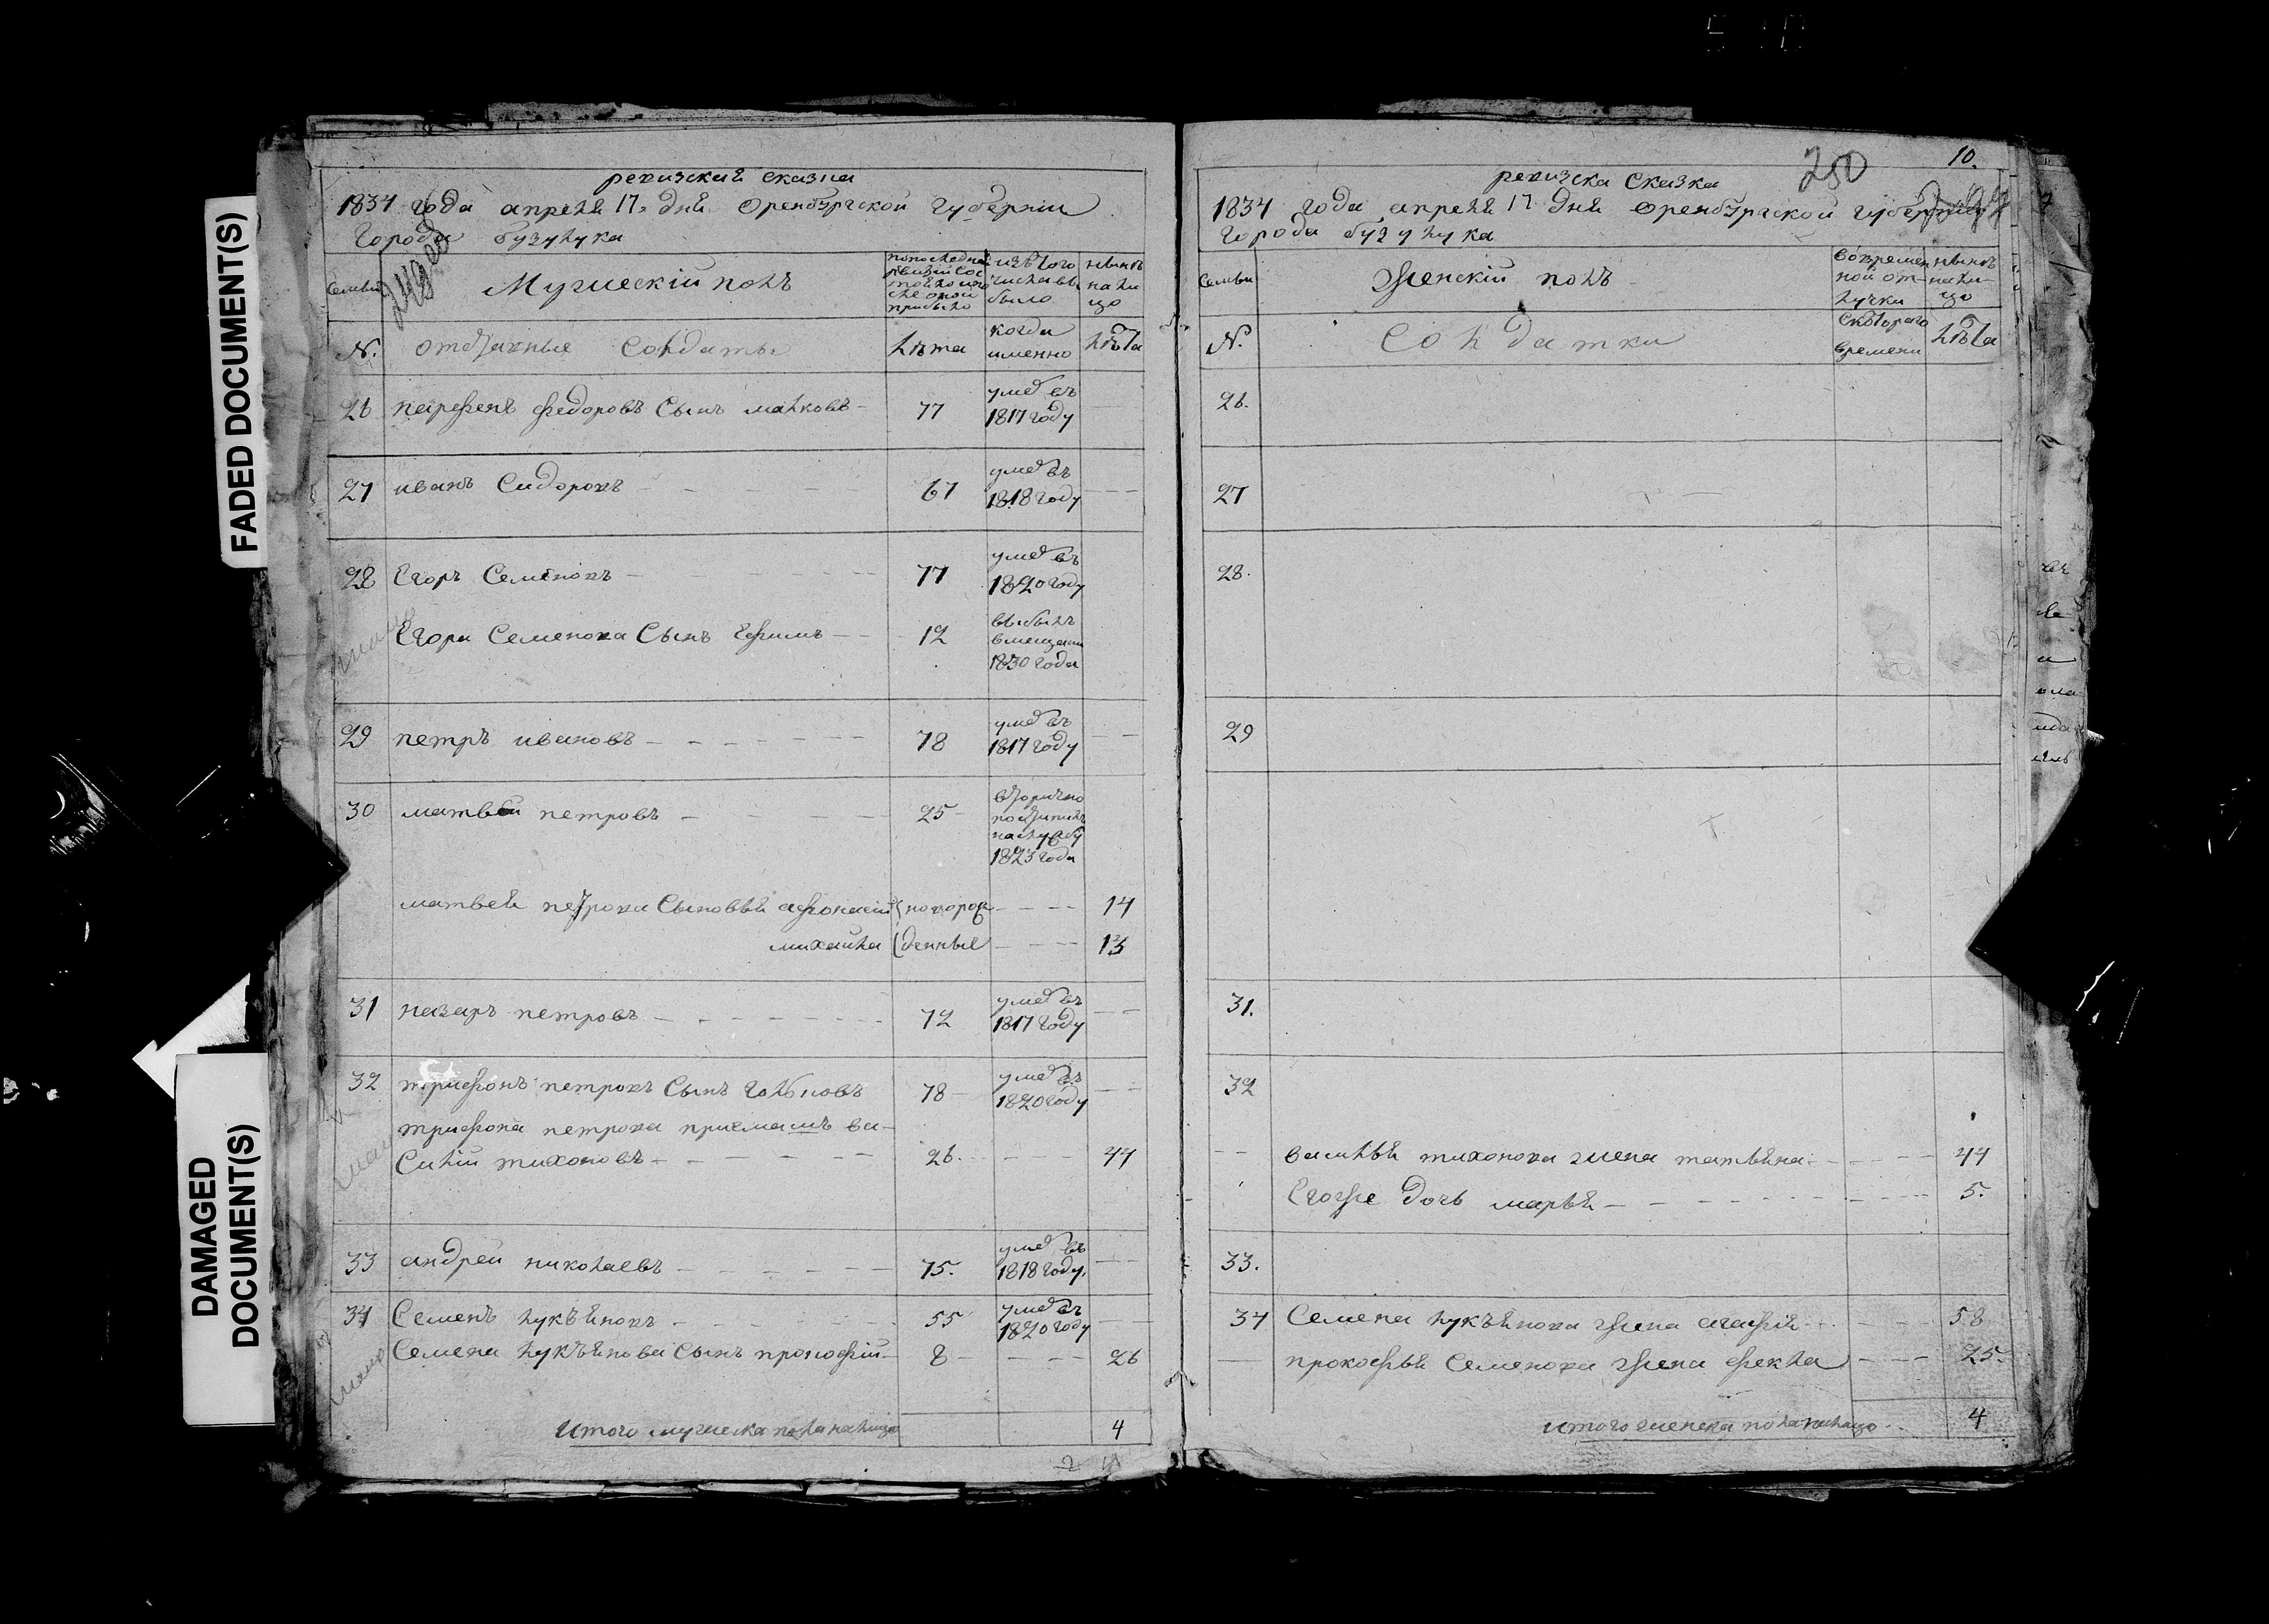 FADED DOCUMENT(S)
DAMAGED
DOCUMENT(S)
ревизская сказка
1834 года апреля 17. дня Оренбургской губернии
города бузулука
Семьи
Мужескій полъ
попоследней
ревизіи сос
тояло и по
сле оной
прибыло
изъ того
числа вы
было
ныне
нали
цо
№.
отставные Солдаты
лета
когда
именно
лѣта
26 парфенъ федоровъ Сынъ малковъ 77
умеръ въ
1817 году
27 иванъ Сидоровъ 67
умеръ въ
1818 году
28 Егоръ Семеновъ 77
умеръ въ
1820 году
Егора Семенова Сынъ Ефимъ 12
выбылъ
вмещани
1830 года
29 петръ ивановъ 78
умеръ въ
1817 году
30 матвеи петровъ 25
вторично
поступилъ
наслужбу
1823 года
матвея петрова Сыновья афонасій новорож 14
михаила денные 13
31 назаръ петровъ 72
умеръ въ
1817 году
32 трифонъ петровъ Сынъ 78
умеръ въ
1820 году
трифона петрова приемышъ ва-
Силій тихоновъ 26. 44
33 андрей николаевъ 75.
умеръ въ
1818 году.
34 Семенъ лукъяновъ 55
умеръ въ
1820 году
Семена лукъянова Сынъ прокофій 8 26
Итого мужеска пола налицо 4
250
10.
ревизска Сказка
1834 года апреля 17 дня Оренбургской губернии
города бузулука
Семьи
Женскій полъ
вовремен
ной от-
лучки
ныне
нали-
цо
№.
Солдатки
Скотораго
времени
лѣта
26.
27
28.
29
31.
32
василья тихонова жена татьяна 44
Егоже дочь марья 5.
33.
34 Семена лукъянова жена агафія 58
прокофья Семенова жена фекла 25.
итого женска пола налицо 4